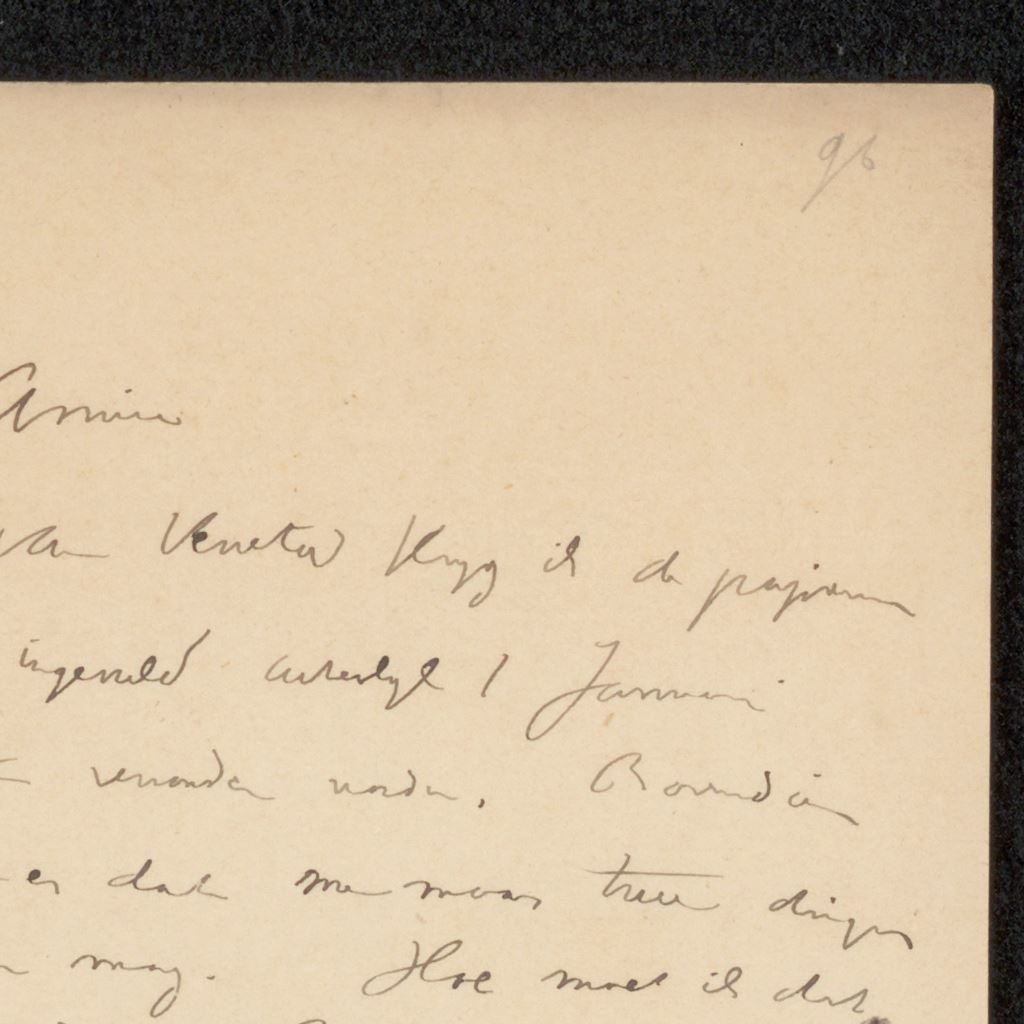 96
Annie
van Veneto krijg ik de papieren
ingevuld uiterlijk 1 Januari
verzonden worden. Bovendien
er dat me maar twee dingen
mag. Hoe moet ik dat